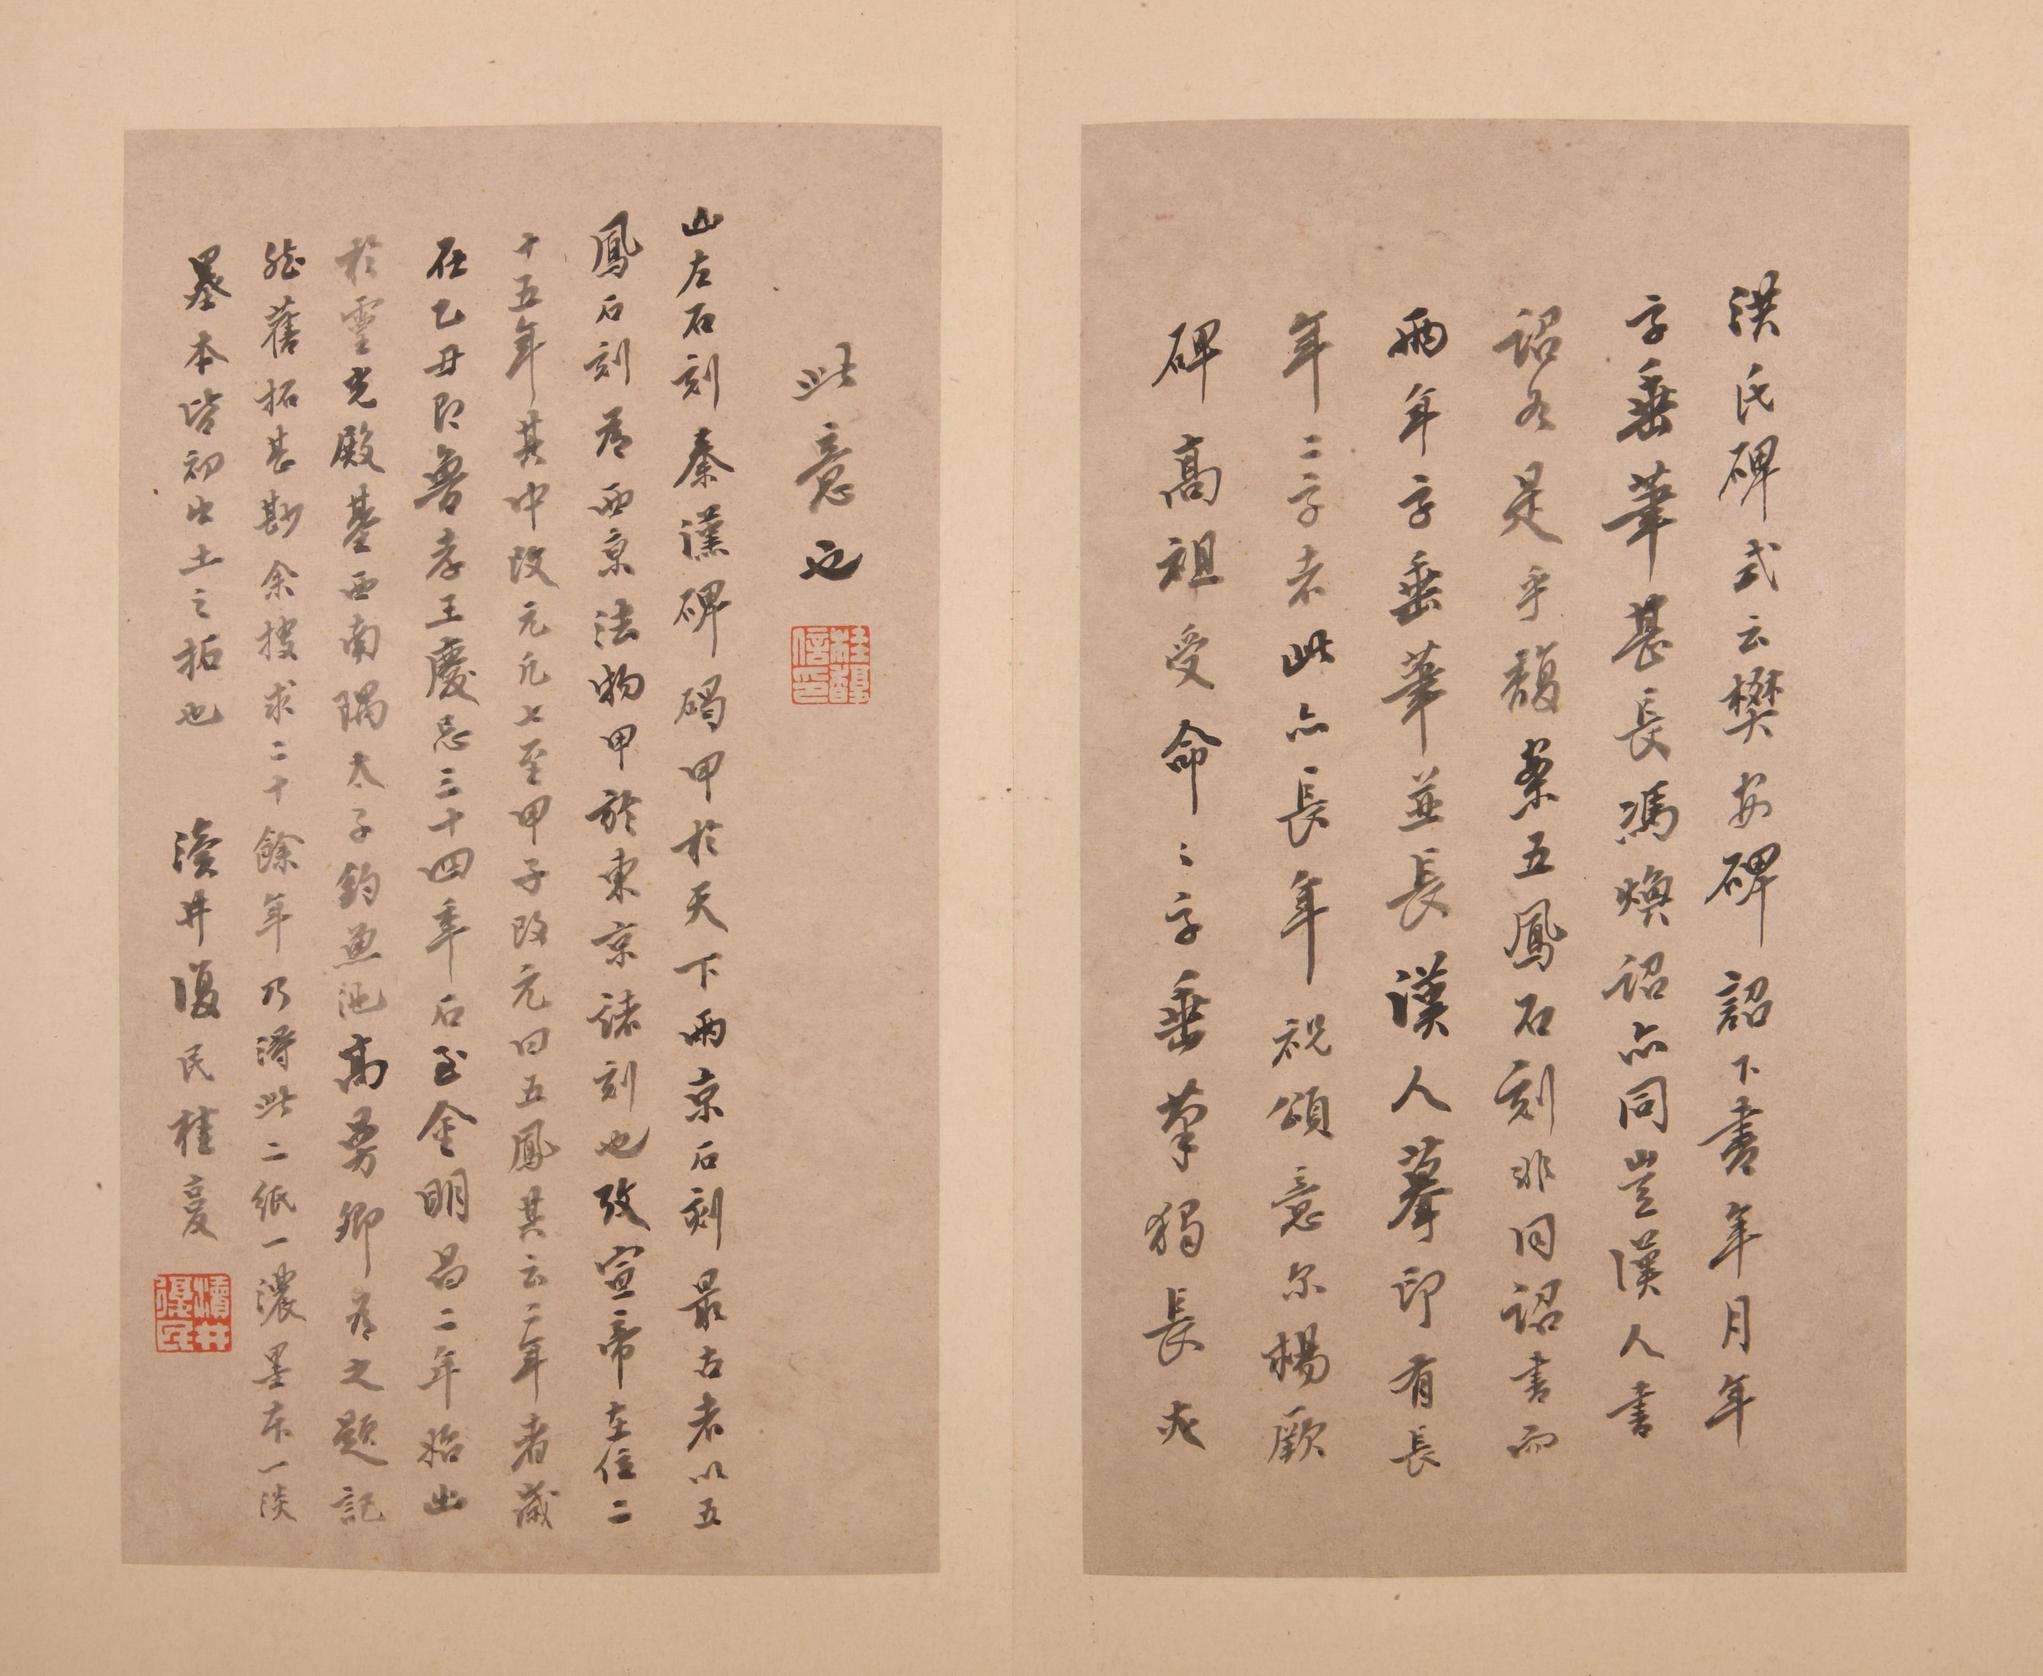 洪氏碑式云樊安碑詔下書年月年
字垂筆甚長馮煥詔亦同豈漢人書
詔各是乎馥案五鳳石刻非同詔書而
兩年字垂筆並長漢人摹印有長
年二字者此亦長年祝頌意尔楊厥
碑高祖受命〻字垂筆獨長亦
此意也
桂馥信印
山左石刻秦漢碑碣甲於天下兩京石刻最古者以五
鳳石刻為西京法物甲於東京諸刻也攷宣帝在位二
十五年其中改元凡七至甲子改元曰五鳳其云二年者歲
在乙丑即魯孝王慶忌三十四年石至金明昌二年始出
於靈光殿基西南隅太子釣魚池高曼卿為之題記
然舊拓甚尠余搜求二十餘年乃得此二紙一濃墨本一淡
墨本皆初出土之拓也 瀆井復民桂馥
瀆井復民